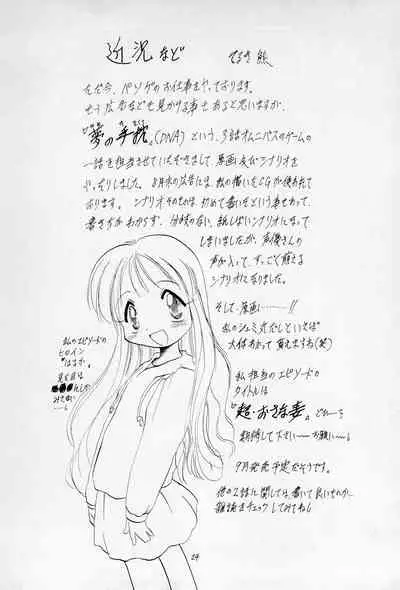 近況など
てるき熊
ただ今、パソゲのお仕事をやっております。
もう広告などを見かける事もあると思いますが、
"夢の手枕"。(DNA)という、3話オムニバスのゲームの
一話を担当させていただきまして、原画及びシナリオを
やったりしました。8月末の広告には、私の描いたCGが使われて
おります。シナリオそのものは、初めて書いたという事もあって、
書き方がわからず、分岐のない、寂しいシナリオになって
しまいましたが、声優さんの
声が入って、すっごく萌える
シナリオになりました。
そして、原画……!!
私のシュミ
大体わかって貰えますね(笑)
私のエピソードの
ヒロイン
"はるか。
私担当のエピソードの
タイトルは
"超・おさな妻。
期待して下さい〜お願い〜。
9月発売予定だそうです。
他の2話に関しては、書いて良い
雑誌をチェックしてみてね。
24